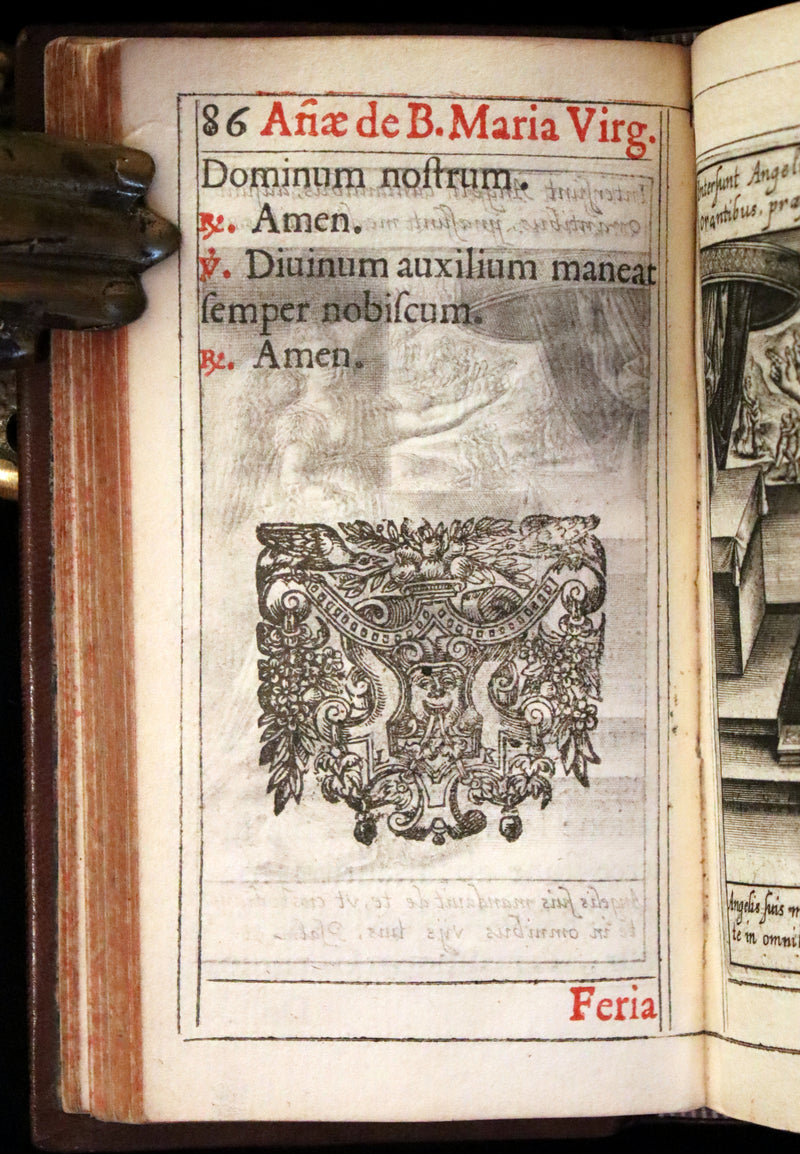 86 Añæ de B. Maria Virg.
Dominum noſtrum.
℟. Amen.
℣. Diuinum auxilium maneat
ſemper nobiſcum.
℟. Amen.
Feria
Interſunt Angel
orantibus, præ
Angelis ſuis m
te in omni